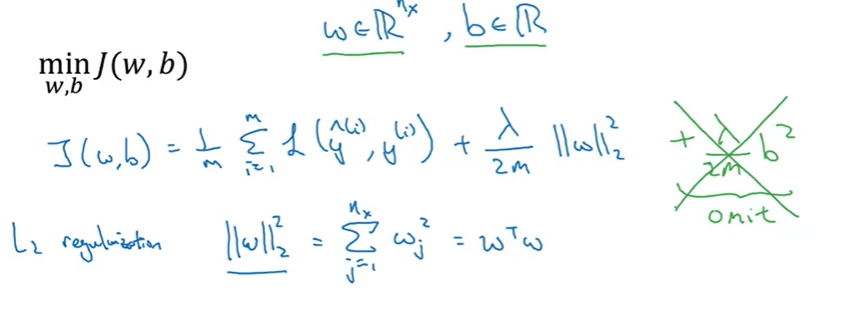 w ∈ ℝ^{n_x} , b ∈ ℝ
min_{w,b} J(w, b)
J(w,b) = 1/m Σ_{i=1}^{m} L(ŷ^{(i)}, y^{(i)}) + λ/2m ||w||_2^2 + λ/2m b^2
omit
L_2 regularization ||w||_2^2 = Σ_{j=1}^{n_x} w_j^2 = w^T w